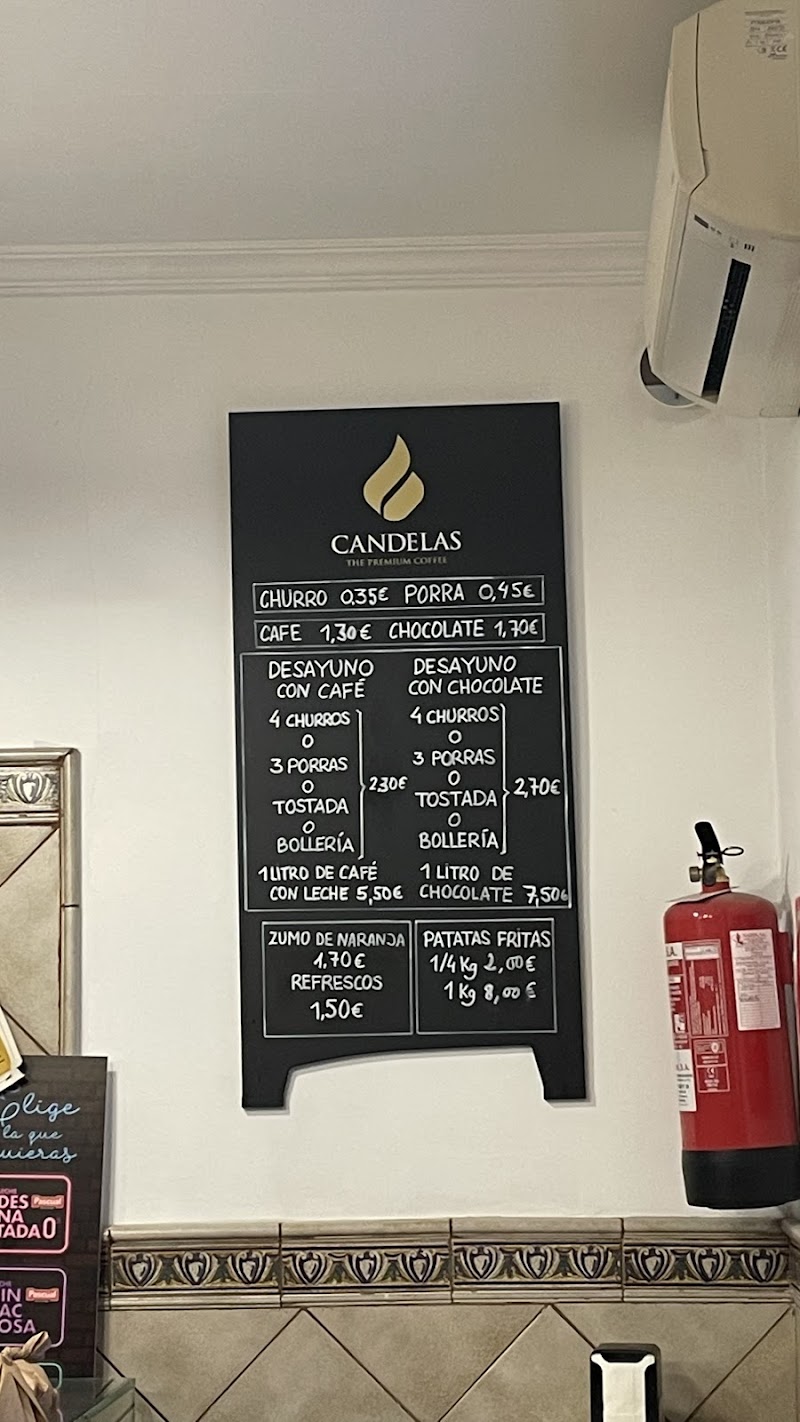 CANDELAS
THE PREMIUM COFFEE
CHURRO 0,35€ PORRA 0,45€
CAFE 1,30€ CHOCOLATE 1,70€
DESAYUNO
CON CAFÉ
4 CHURROS
O
3 PORRAS
O
TOSTADA
O
BOLLERÍA
2,30€
1 LITRO DE CAFÉ
CON LECHE 5,50€
DESAYUNO
CON CHOCOLATE
4 CHURROS
O
3 PORRAS
O
TOSTADA
O
BOLLERÍA
2,70€
1 LITRO DE
CHOCOLATE 7,50€
ZUMO DE NARANJA
1,70€
REFRESCOS
1,50€
PATATAS FRITAS
1/4 Kg 2,00€
1 Kg 8,00€
lige
la que
uieras
DES
NA
TADA 0
Pascual
IN
AC
OSA
Pascual